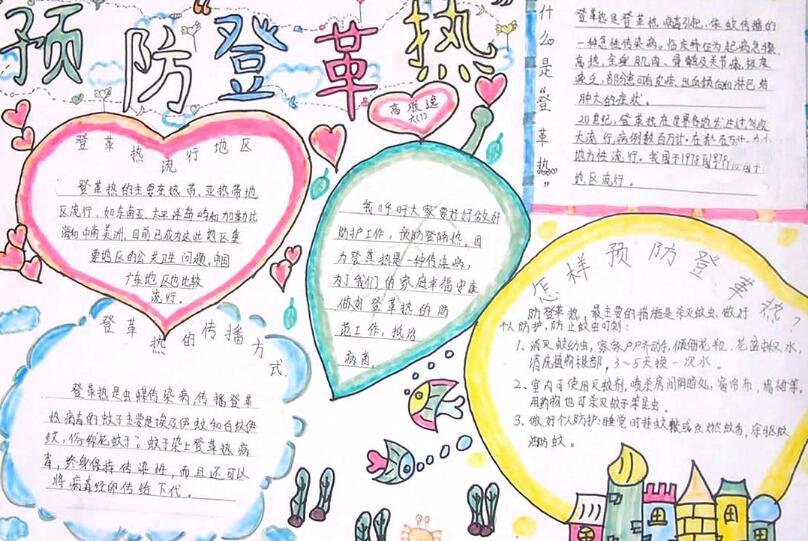 预防“登革热
登革热流行地区
登革热的主要在热带、亚热带地
区流行，如东南亚、太平洋岛屿和加勒比
海和中南美洲，目前已成为这些地区严
重地区的公共卫生问题，中国
广东地区也比较
流行。
登革热的传播方式
登革热是虫媒传染病，传播登革
热病毒的蚊子主要是埃及伊蚊和白纹伊
蚊，俗称“花蚊子”。蚊子染上登革热病
毒，终身保持传染性，而且还可以
将病毒经卵传给下代。
我呼吁大家要好好做好
防护工作，预防登隔热，因
为登革热是一种传染病，
为了我们的家庭幸福安康
做好登革热的防
范工作，抵治
病菌。
什么是“登革热”
登革热是登革热病毒引起、依蚊传播的
一种急性传染病。临床特征为起病急骤，
高热，全身肌肉、骨髓及关节痛，极度
疲乏，部分患可有皮疹、出血倾向和淋巴结
肿大的症状。
20世纪，登革热在世界各地发生过多次
大流行，病例数百万计。
地方性流行。我国于1978
地区流行。
怎样预防登革热？
防登革热，最主要的措施是杀灭蚊虫，做好
个人防护，防止蚊虫叮刺：
1、消灭蚊幼虫，家务户户齐动手，倾倒花瓶、花盆积水，
清洗植物根部，3～5天换一次水。
2、室内可使用灭蚊剂，喷杀房间阴暗处，窗帘布、墙裙等。
用药物也可杀灭蚊子等昆虫。
3、做好个人防护：睡觉时挂蚊帐或点燃蚊香，穿驱蚊